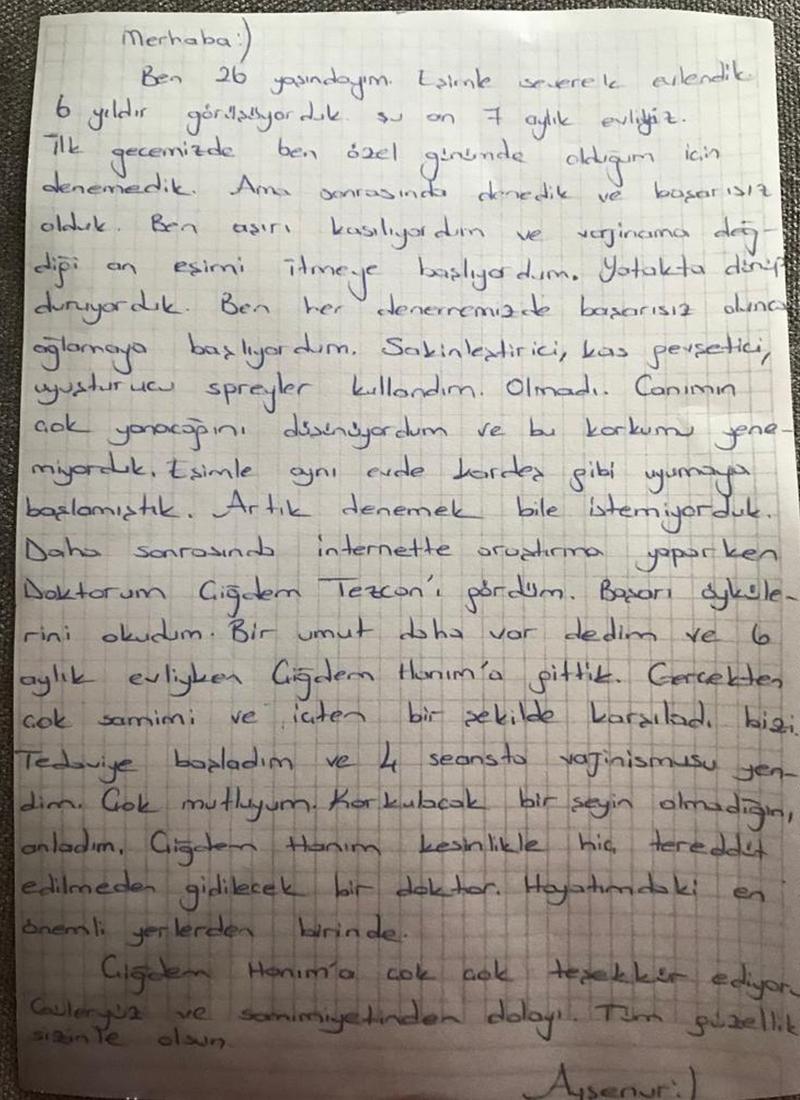 Merhaba:)
Ben 26 yaşındayım. Eşimle severek evlendik.
6 yıldır görüşüyorduk. şu an 7 aylık evliyiz.
İlk gecemizde ben özel günümde olduğum için
denemedik. Ama sonrasında denedik ve başarısız
olduk. Ben aşırı kasılıyordum ve vajinama değ-
diği an eşimi itmeye başlıyordum. Yatakta dönüp
duruyorduk. Ben her denememizde başarısız olunca
ağlamaya başlıyordum. Sakinleştirici, kas gevşetici,
uyuşturucu spreyler kullandım. Olmadı. Canımın
çok yanacağını düşünüyordum ve bu korkumu yene-
miyorduk. Eşimle aynı evde kardeş gibi uyumaya
başlamıştık. Artık denemek bile istemiyorduk.
Daha sonrasında internette araştırma yaparken
Doktorum Çiğdem Tezcan'ı gördüm. Başarı öyküle-
rini okudum. Bir umut daha var dedim ve 6
aylık evliyken Çiğdem Hanım'a gittik. Gerçekten
çok samimi ve içten bir şekilde karşıladı bizi.
Tedaviye başladım ve 4 seansta vajinismusu yen-
dim. Çok mutluyum. Korkulacak bir şeyin olmadığını
anladım. Çiğdem Hanım kesinlikle hiç tereddüt
edilmeden gidilecek bir doktor. Hayatımdaki en
önemli yerlerden birinde.
Çiğdem Hanım'a çok çok teşekkür ediyorum
Güleryüz ve samimiyetinden dolayı. Tüm güzellik
sizinle olsun.
Ayşenur:)